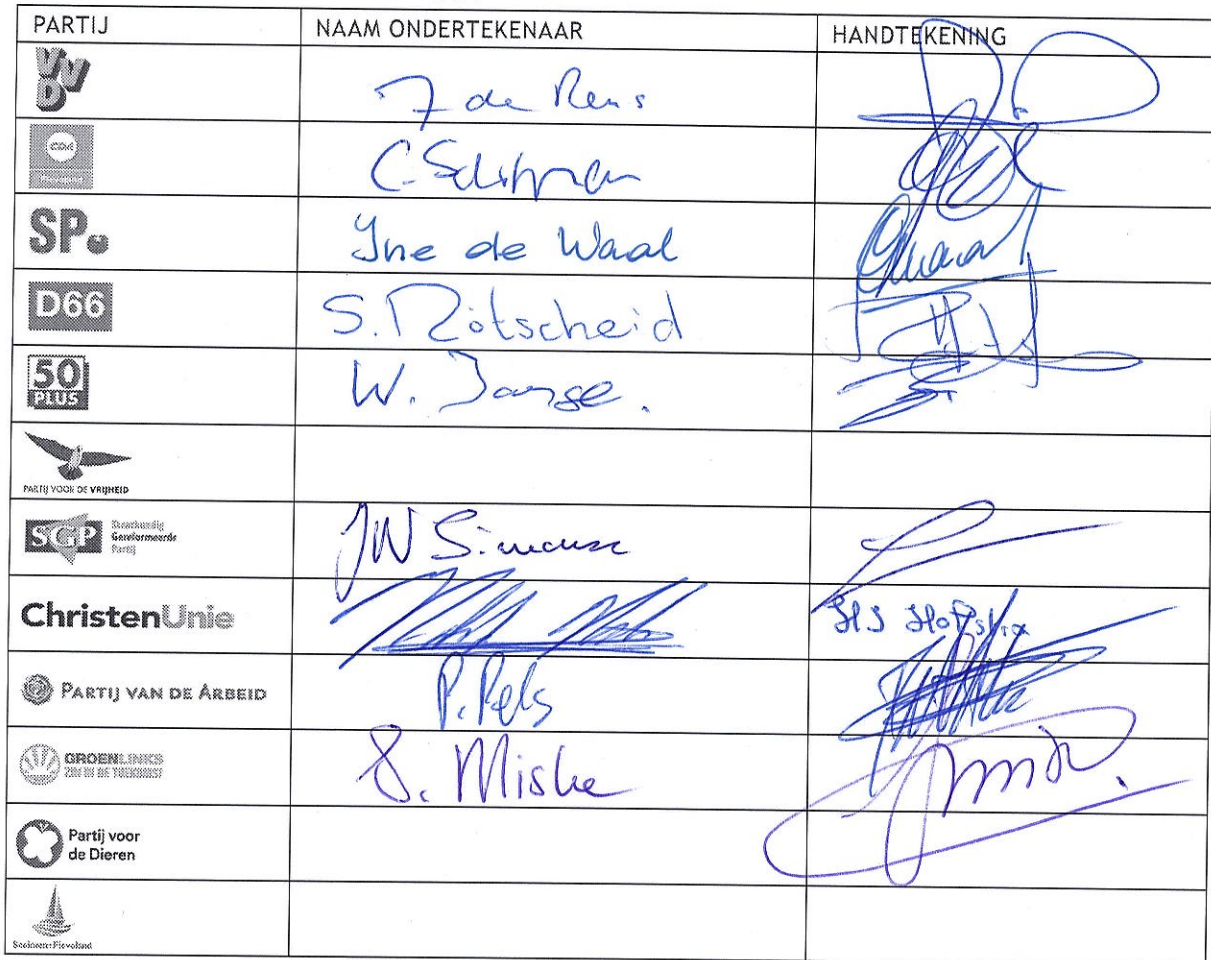 PARTIJ NAAM ONDERTEKENAAR HANDTEKENING
VVD
de
CDA
C.
SP. Ine de Waal
D66 S. Rötscheid
50 PLUS W. Janse.
PARTIJ VOOR DE VRIJHEID
SGP Staatkundig Gereformeerde Partij JW Simonse
ChristenUnie HJ Hofstra
PARTIJ VAN DE ARBEID P. Pels
GROENLINKS S. Miske
Partij voor de Dieren